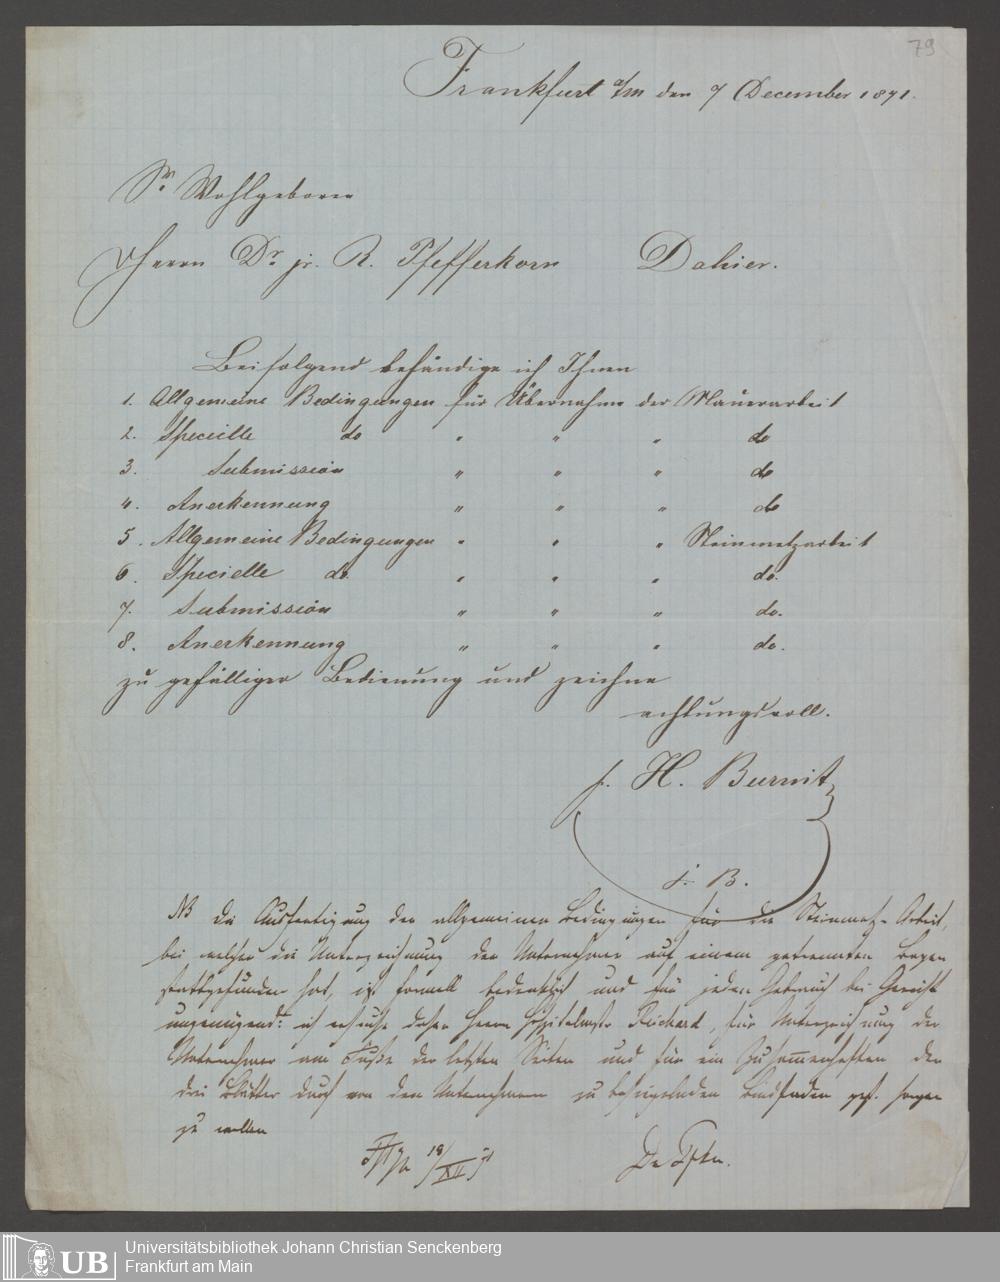 79
Frankfurt a/m den 7 December 1871.
Sr. Wohlgeboren
Herrn Dr. jr. R. Pfefferkorn Dahier.
Beifolgend behändige ich Ihnen
1. Allgemeine Bedingungen für Übernahme der Mauerarbeit
2. Specielle do " " " do
3. Submission " " " do
4. Anerkennung " " " do
5. Allgemeine Bedingungen " " " Steinmetzarbeit
6. Specielle do. " " " do.
7. Submission " " " do.
8. Anerkennung " " " do.
zu gefälliger Bedienung und zeichne
achtungsvoll.
H. Burnitz
B.
NB die Ausfertigung der allgemeinen Bedingungen für die Steinmetz-Arbeit,
bei welcher die Unterzeichnung der Unternehmer auf einem getrennten Bogen
stattgefunden hat, ist formell bedenklich und für jeden Gebrauch bei Gericht
ungenügend: ich ersuche daher Herrn Hospitalmstr Reichard, für Unterzeichnung der
Unternehmer am Fuße der letzten Seiten und für ein Zusammenheften der
drei Blätter durch von den Unternehmern zu besiegelnden Bindfaden gef. sorgen
zu wollen
18/XII 71 Dr Pfkn.
Universitätsbibliothek Johann Christian Senckenberg
UB Frankfurt am Main